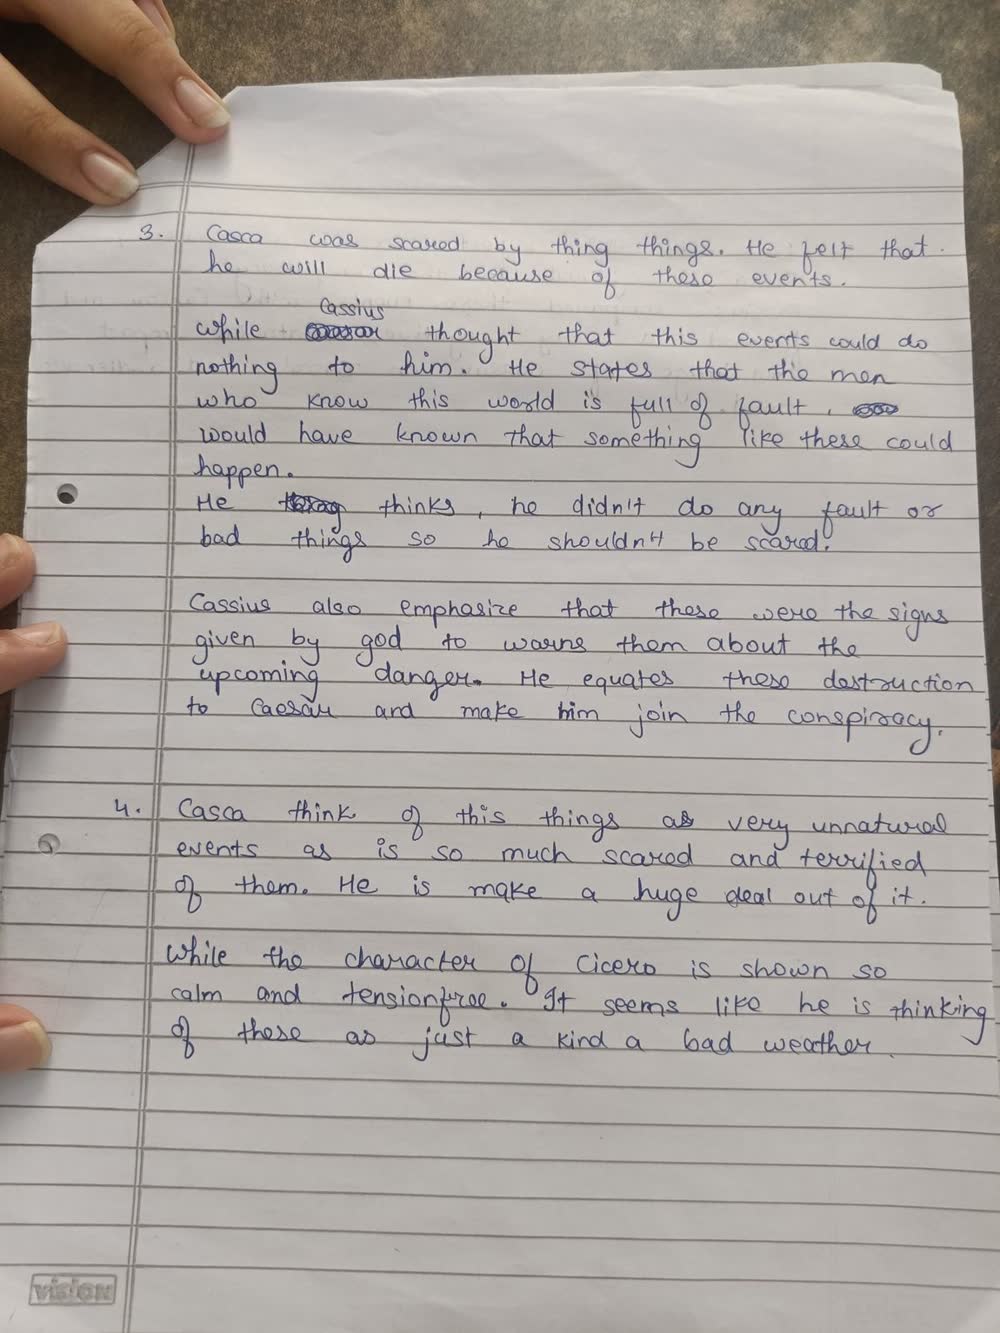 3. Casca was scared by thing things. He felt that
he will die because of these events.
Cassius
while thought that this events could do
nothing to him. He states that the men
who know this world is full of fault,
would have known that something like these could
happen.
He thinks, he didn't do any fault or
bad things so he shouldn't be scared.
Cassius also emphasize that these were the signs
given by god to warns them about the
upcoming danger. He equates these destruction
to Caesar and make him join the conspiracy.
4. Casca think of this things as very unnatural
events as is so much scared and terrified
of them. He is make a huge deal out of it.
While the character of Cicero is shown so
calm and tensionfree. It seems like he is thinking
of these as just a kind a bad weather.
vision